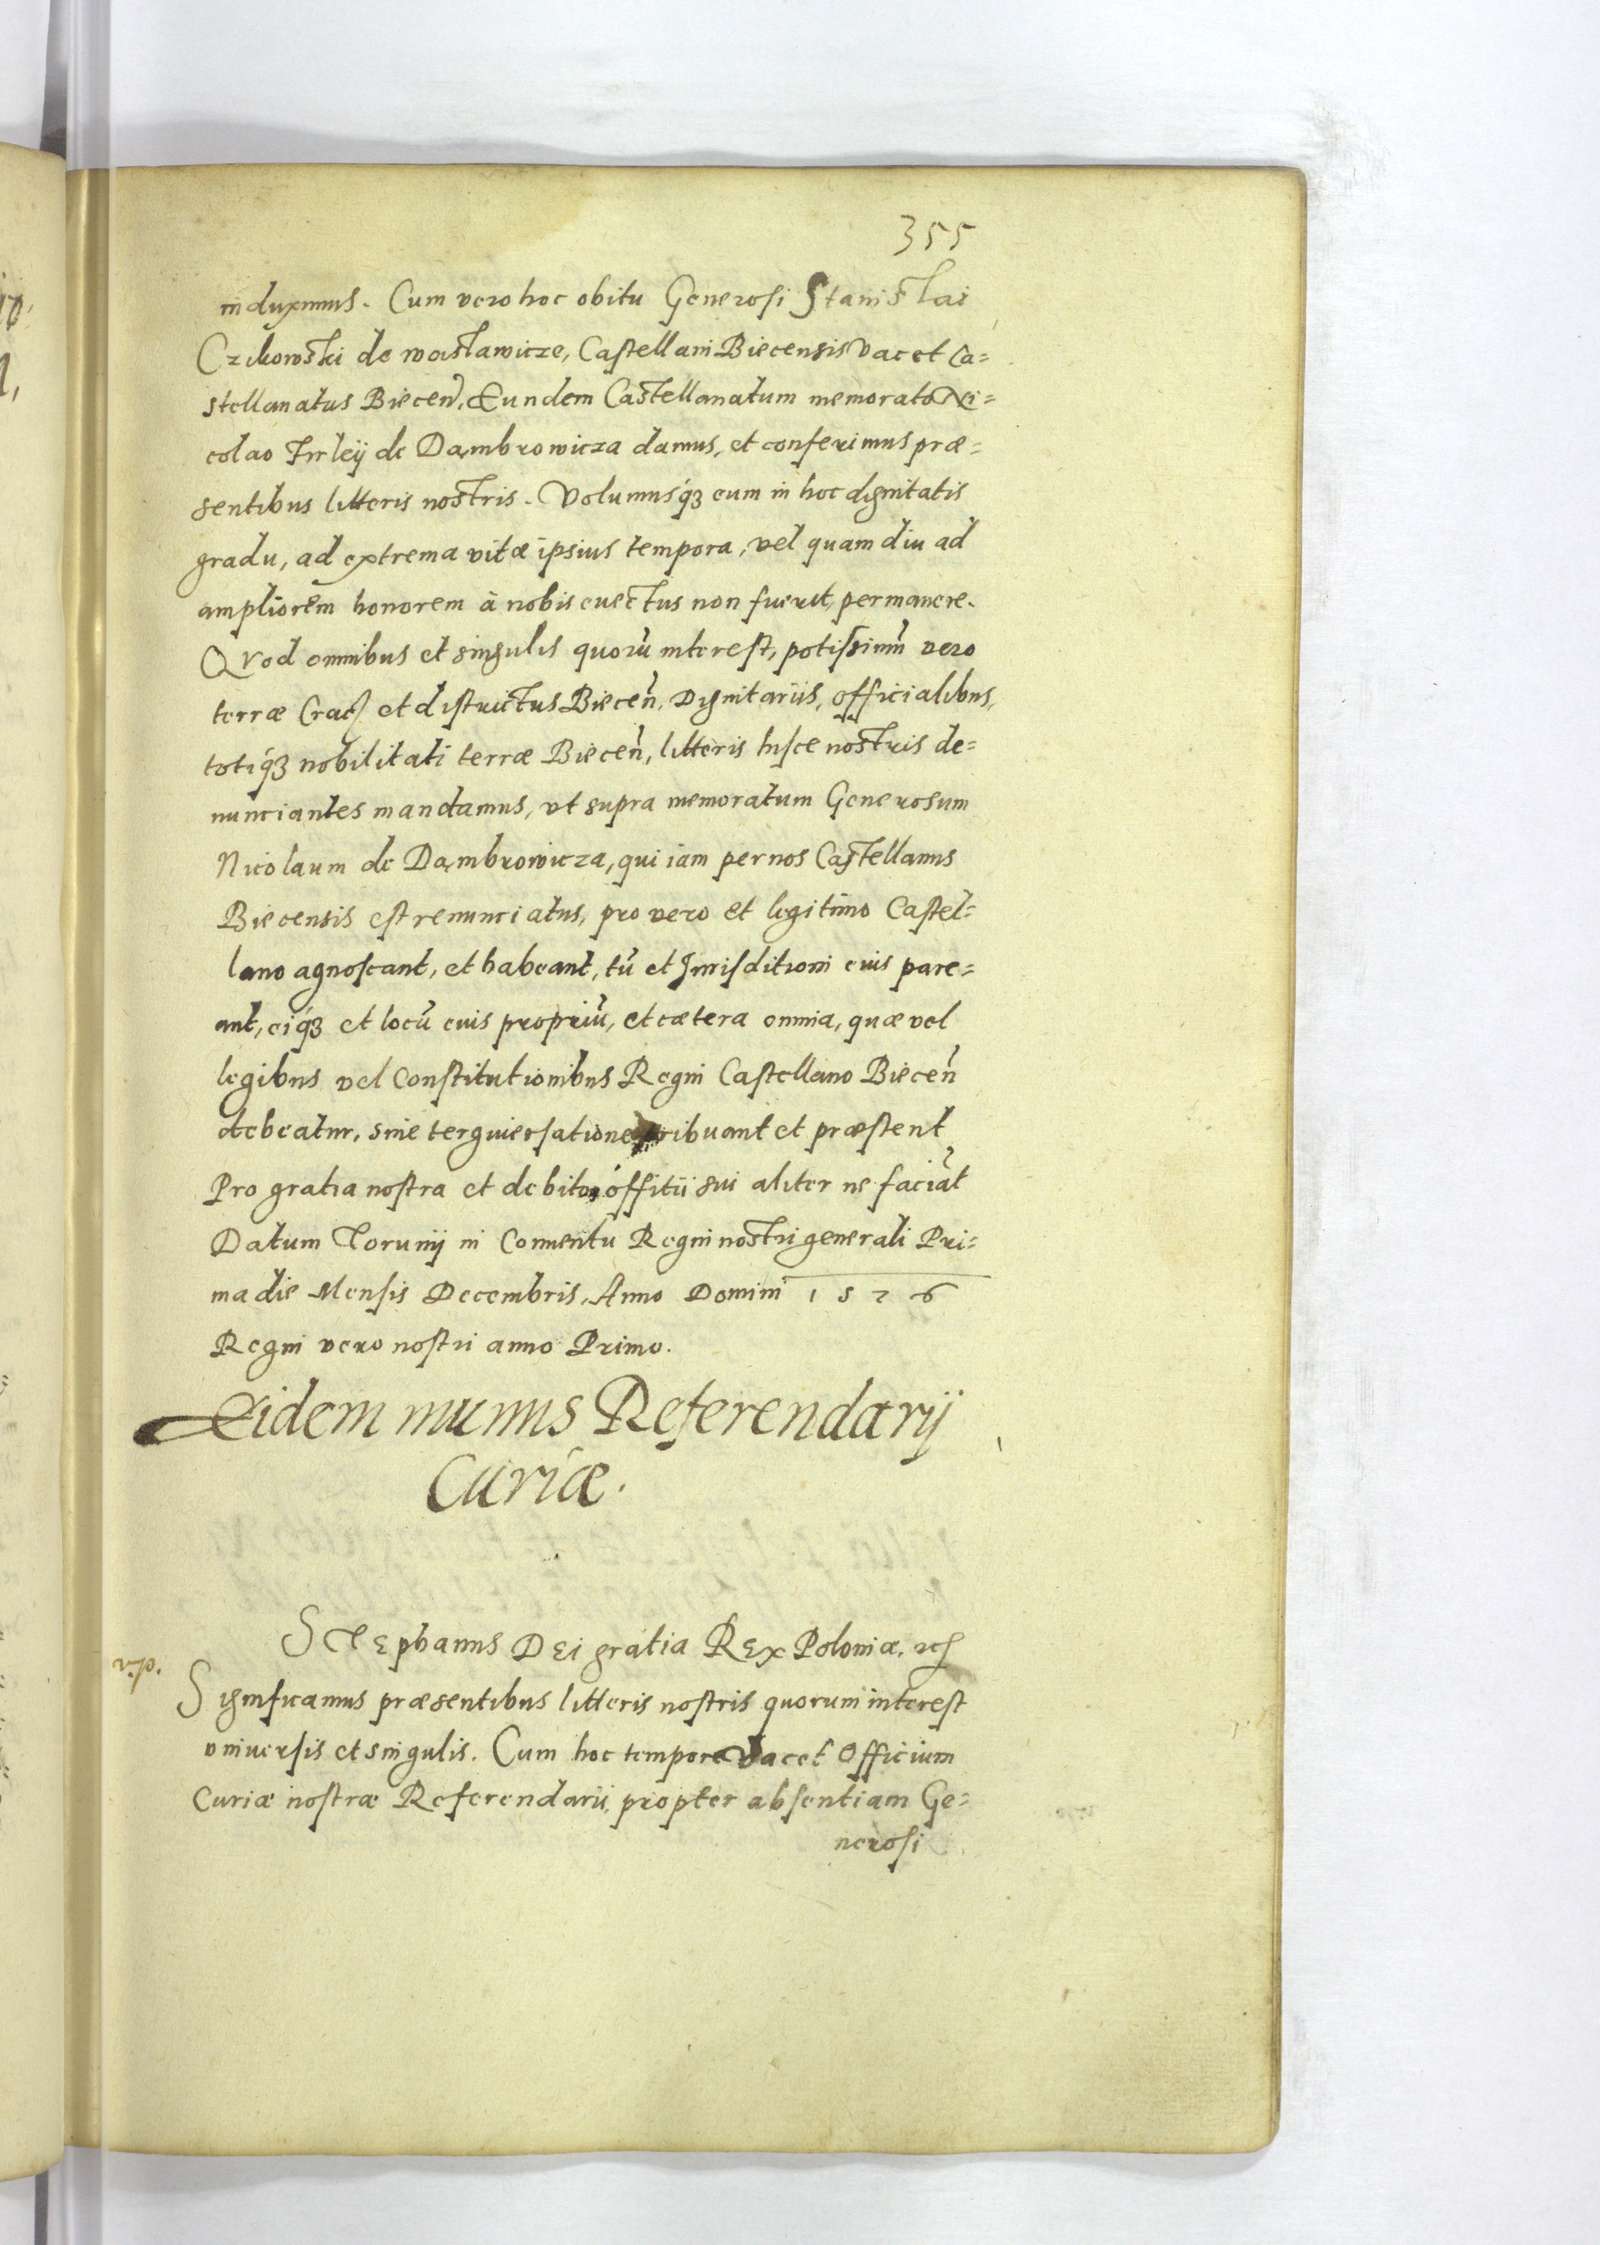 355
induximus. Cum vero hoc obitu Generosi Stanislai
Czikowski de woislawicze, Castellani Biecensis Vacet Ca=
stellanatus Biecen̄, Eundem Castellanatum memorato Ni=
colao Firleÿ de Dambrowicza damus, et conferimus præ=
sentibus litteris nostris. Volumusq́ꝫ eum in hoc dignitatis
gradu, ad extrema vitæ ipsius tempora, vel quam diu ad
ampliorem honorem à nobis euectus non fuerit, permanere.
QVod omnibus et singulis quorū interest, potissimū vero
terræ Crac̄ et districtus Biecen̄, Dignitariis, officialibus,
totiq́ꝫ nobilitati terræ Biecen̄, litteris hisce nostris de=
nunciantes mandamus, vt supra memoratum Generosum
Nicolaum de Dambrowicza, qui iam per nos Castellanus
Biecensis est renunciatus, pro vero et legitimo Castel=
lano agnoscant, et habeant, tū et Jurisditioni eius pare=
ant, eiq́ꝫ et locū eius propriū, et cætera omnia, quæ vel
legibus vel Constitutionibus Regni Castellano Biecen̄
debeatur, sine terguiersatione tribuant et præstent
Pro gratia nostra et debito offitii sui aliter ne faciāt
Datum Torunij in Conuentu Regni nostri generali Pri=
ma die Mensis Decembris, Anno Domini 1576
Regni vero nostri anno Primo.
Eidem munus Referendarij
Curiæ.
STEphanus DEi gratia REx Poloniæ, etc
Significamus præsentibus litteris nostris quorum interest
vniuersis et singulis. Cum hoc tempore Vacet Officium
Curiæ nostræ Referendarii propter absentiam Ge=
nerosi